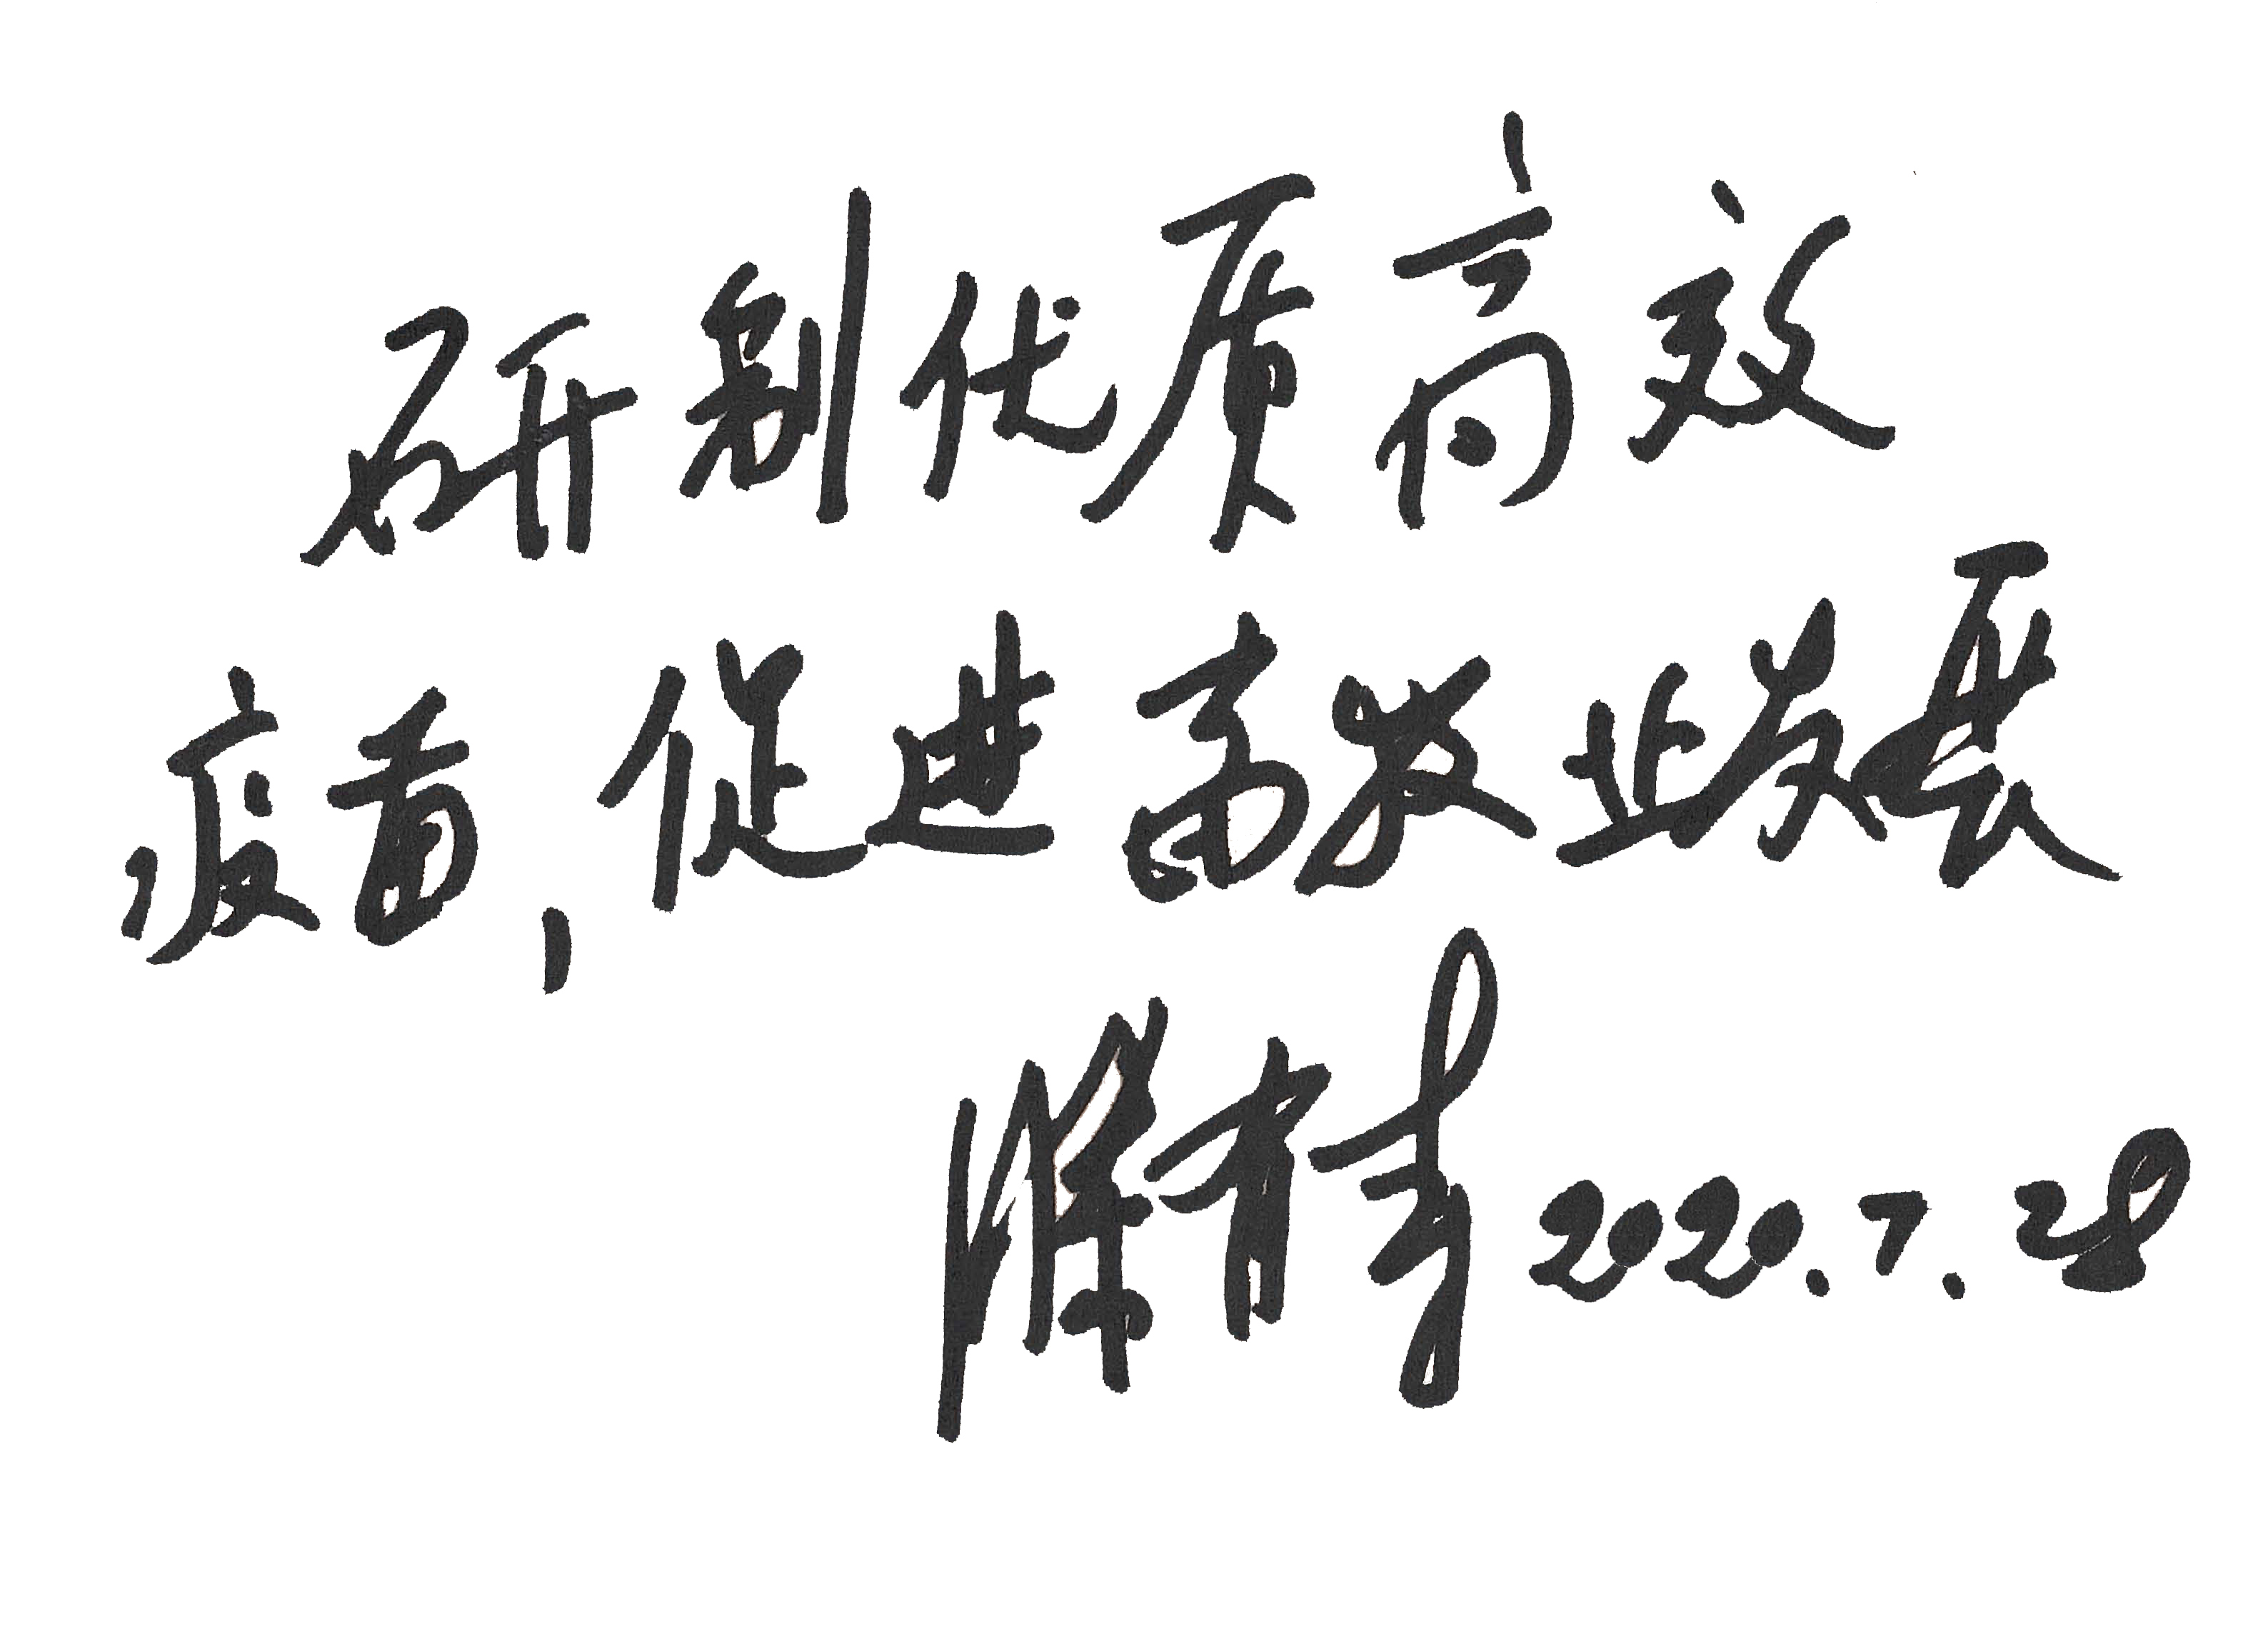 研制优质高效
疫苗,促进畜牧业发展
陈育青 2020.7.28